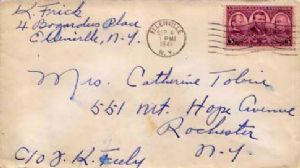 K. Frick
4 Bogardus Place
Ellenville, N.Y.
ELLENVILLE
SEP 4
PM
1941
N.Y.
Mrs. Catherine Tobin
551 Mt. Hope Avenue
Rochester
N.Y.
C/O J. K.